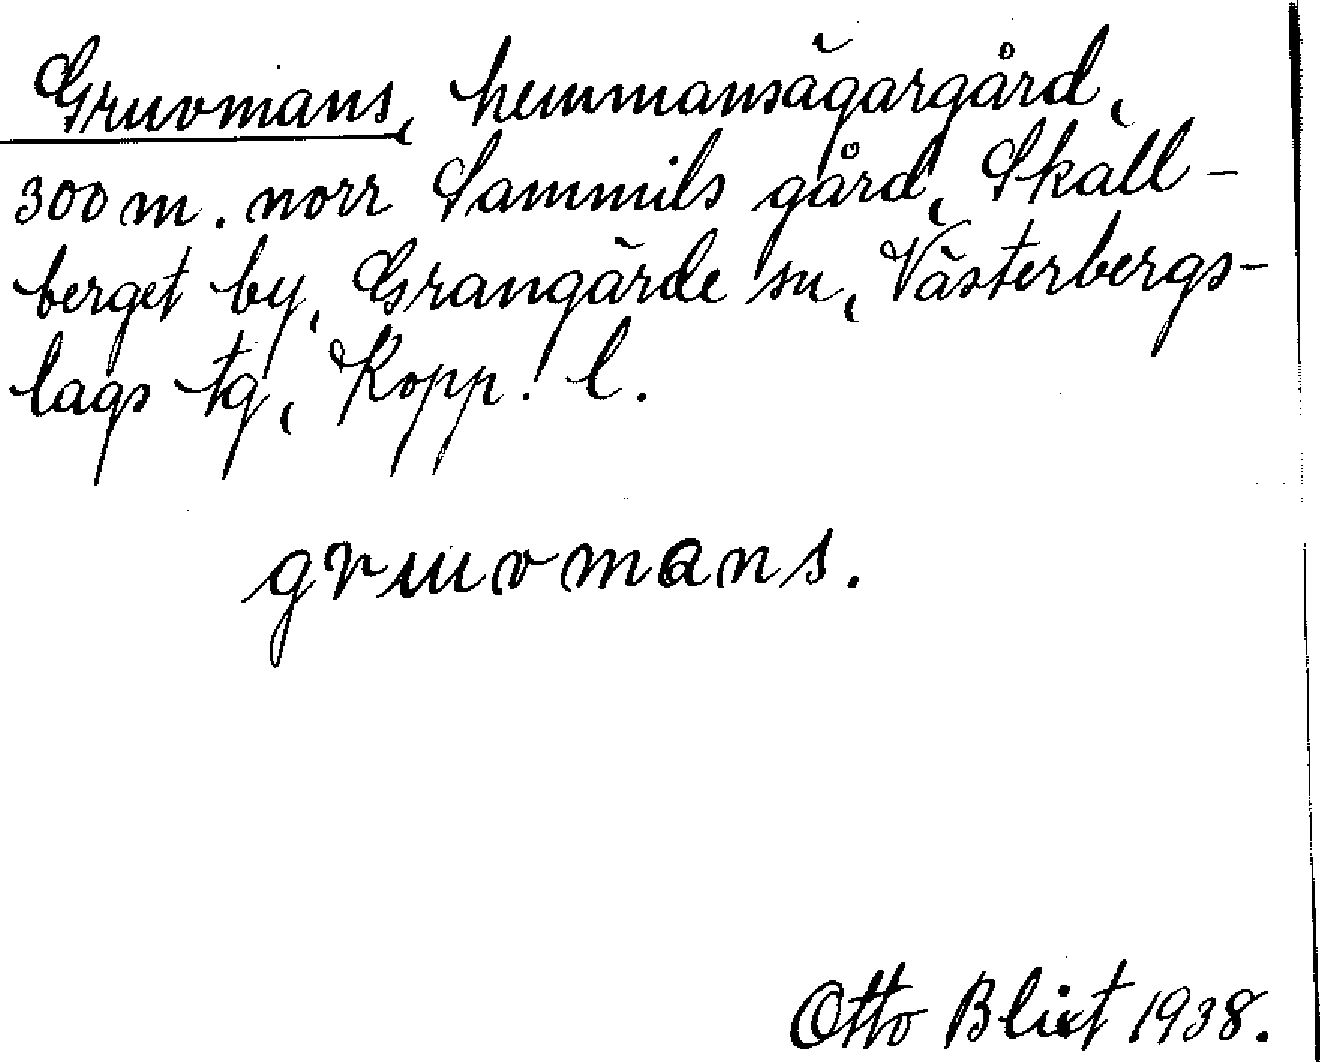 Gruvmans, hemmansägargård,
300 m. norr Sammils gård, Skäll-
berget by, Grangärde sn, Västerbergs-
lags tg, Kopp. l.
gruvmans.
Otto Blixt 1938.